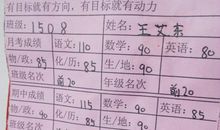 有目标就有方向，有目标就有动力
班级：1508 姓名：王艾东
月考成绩 语文：110 数学：90 英语：80
物/政：85 化/历：85 生/地：90
班级名次 前20 年级名次
期中成绩 语文：115 数学：90 英语：
物/政：90 化/历：85 生/地：90